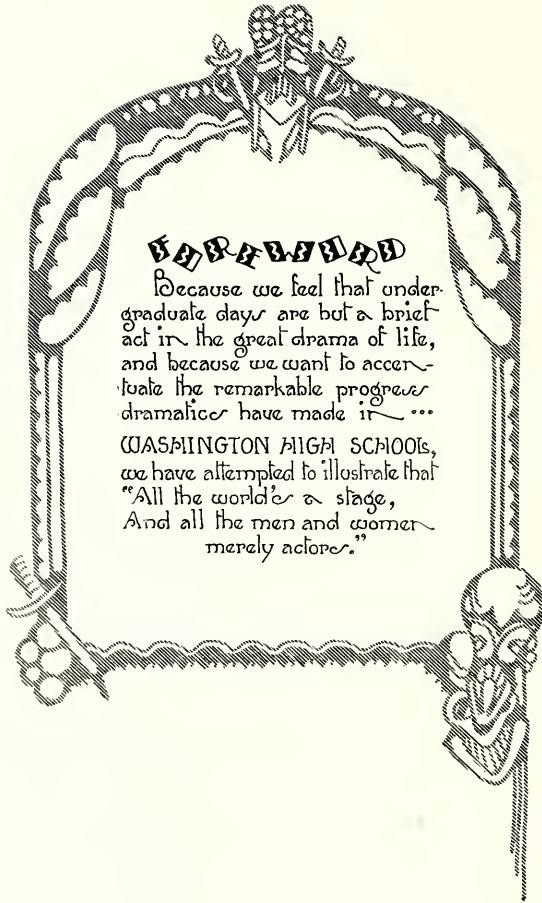 FOREWORD
Because we feel that under-
graduate days are but a brief
act in the great drama of life,
and because we want to accen-
tuate the remarkable progress
dramatics have made in ...
WASHINGTON HIGH SCHOOL,
we have attempted to illustrate that
"All the world's a stage,
And all the men and women
merely actors."